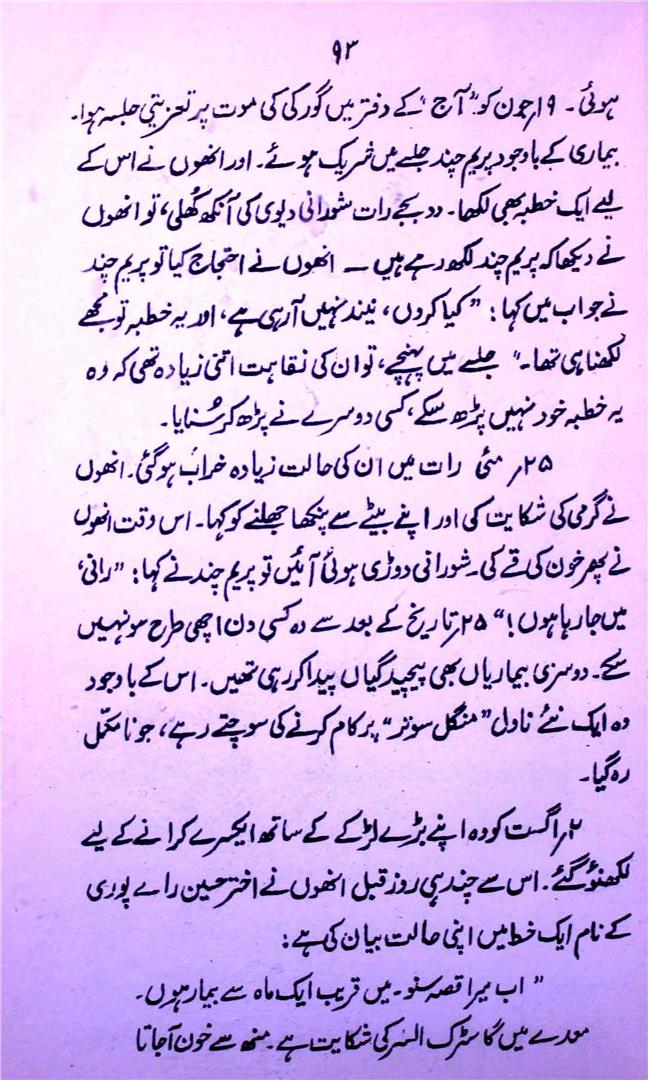 ۹۳
ہوئی۔ ۱۹؍جون کو "آج" کے دفتر میں گورکی کی موت پر تعزیتی جلسہ ہوا۔
بیماری کے باوجود پریم چند جلسے میں شریک ہوئے۔ اور انھوں نے اس کے
لیے ایک خطبہ بھی لکھا۔ دو بجے رات شورانی دیوی کی آنکھ کُھلی، تو انھوں
نے دیکھا کہ پریم چند لکھ رہے ہیں — انھوں نے احتجاج کیا تو پریم چند
نے جواب میں کہا: "کیا کروں، نیند نہیں آ رہی ہے، اور یہ خطبہ تو مجھے
لکھنا ہی تھا۔" جلسے میں پہنچے، تو ان کی نقاہت اتنی زیادہ تھی کہ وہ
یہ خطبہ خود نہیں پڑھ سکے، کسی دوسرے نے پڑھ کر سُنایا۔
۲۵؍ مئی رات میں ان کی حالت زیادہ خراب ہو گئی۔ انھوں
نے گرمی کی شکایت کی اور اپنے بیٹے سے پنکھا جھلنے کو کہا۔ اس وقت انھوں
نے پھر خون کی قے کی۔ شورانی دوڑی ہوئی آئیں تو پریم چند نے کہا: "رانی،
میں جا رہا ہوں!" ۲۵؍تاریخ کے بعد سے وہ کسی دن اچھی طرح سو نہیں
سکے۔ دوسری بیماریاں بھی پیچیدگیاں پیدا کر رہی تھیں۔ اس کے باوجود
وہ ایک نئے ناول "منگل سوتر" پر کام کرنے کی سوچتے رہے، جو نا مکمّل
رہ گیا۔
۲؍اگست کو وہ اپنے بڑے لڑکے کے ساتھ ایکسرے کرانے کے لیے
لکھنؤ گئے۔ اس سے چند ہی روز قبل انھوں نے اختر حسین رائے پوری
کے نام ایک خط میں اپنی حالت بیان کی ہے:
"اب میرا قصہ سنو۔ میں قریب ایک ماہ سے بیمار ہوں۔
معدے میں گاسٹرک السر کی شکایت ہے۔ منھ سے خون آ جاتا